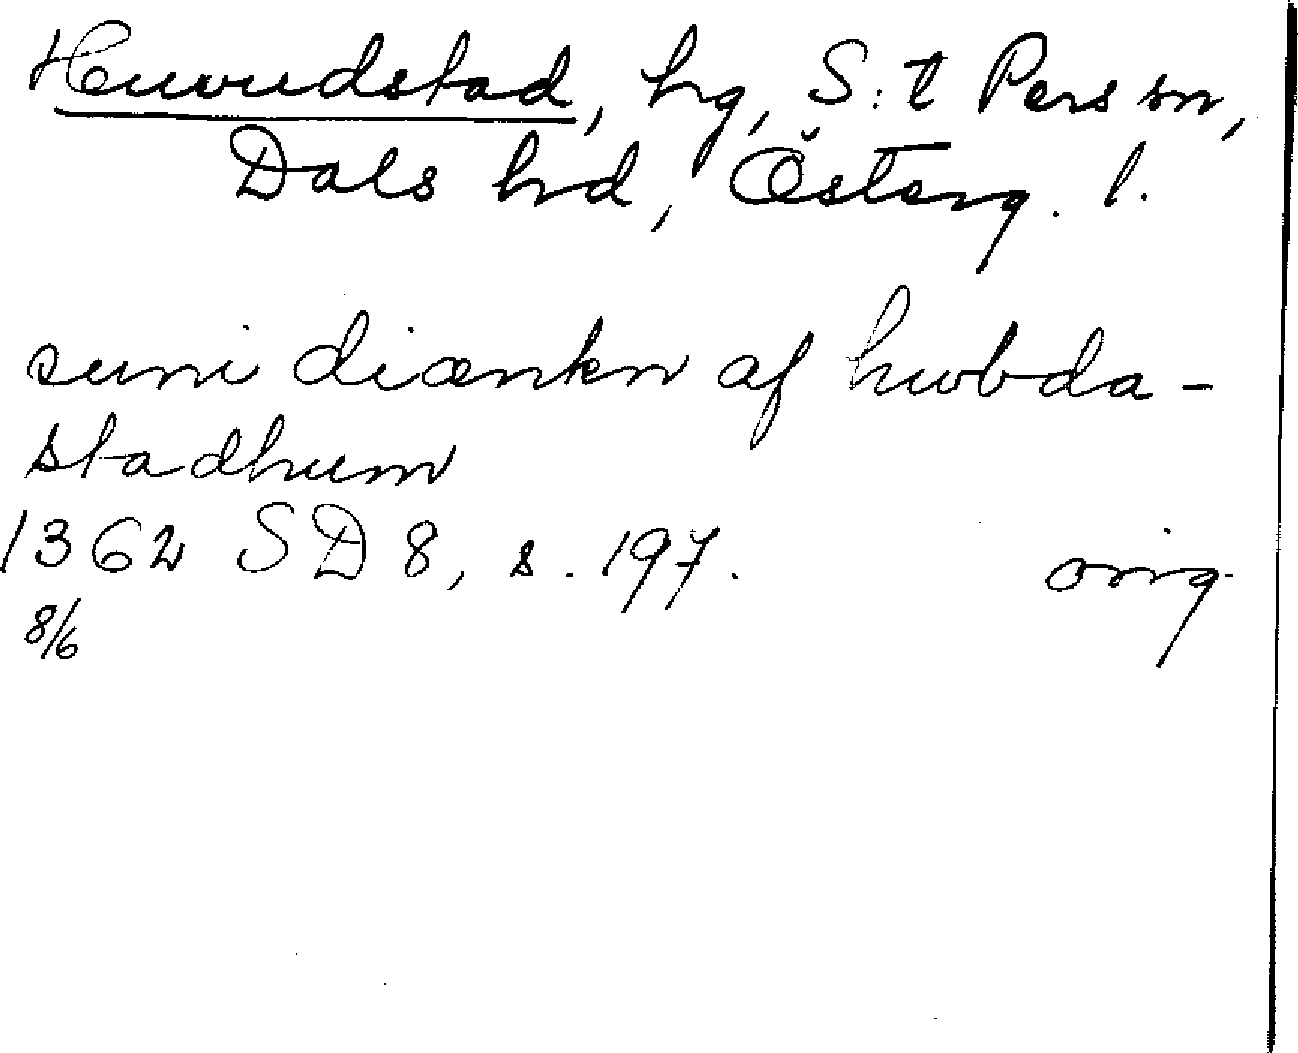 Huvudstad, hg, S:t Pers sn,
Dals hd, Österg. l.
suni diænkn af hwbda-
stadhum
1362 SD 8, s. 197. orig.
8/6